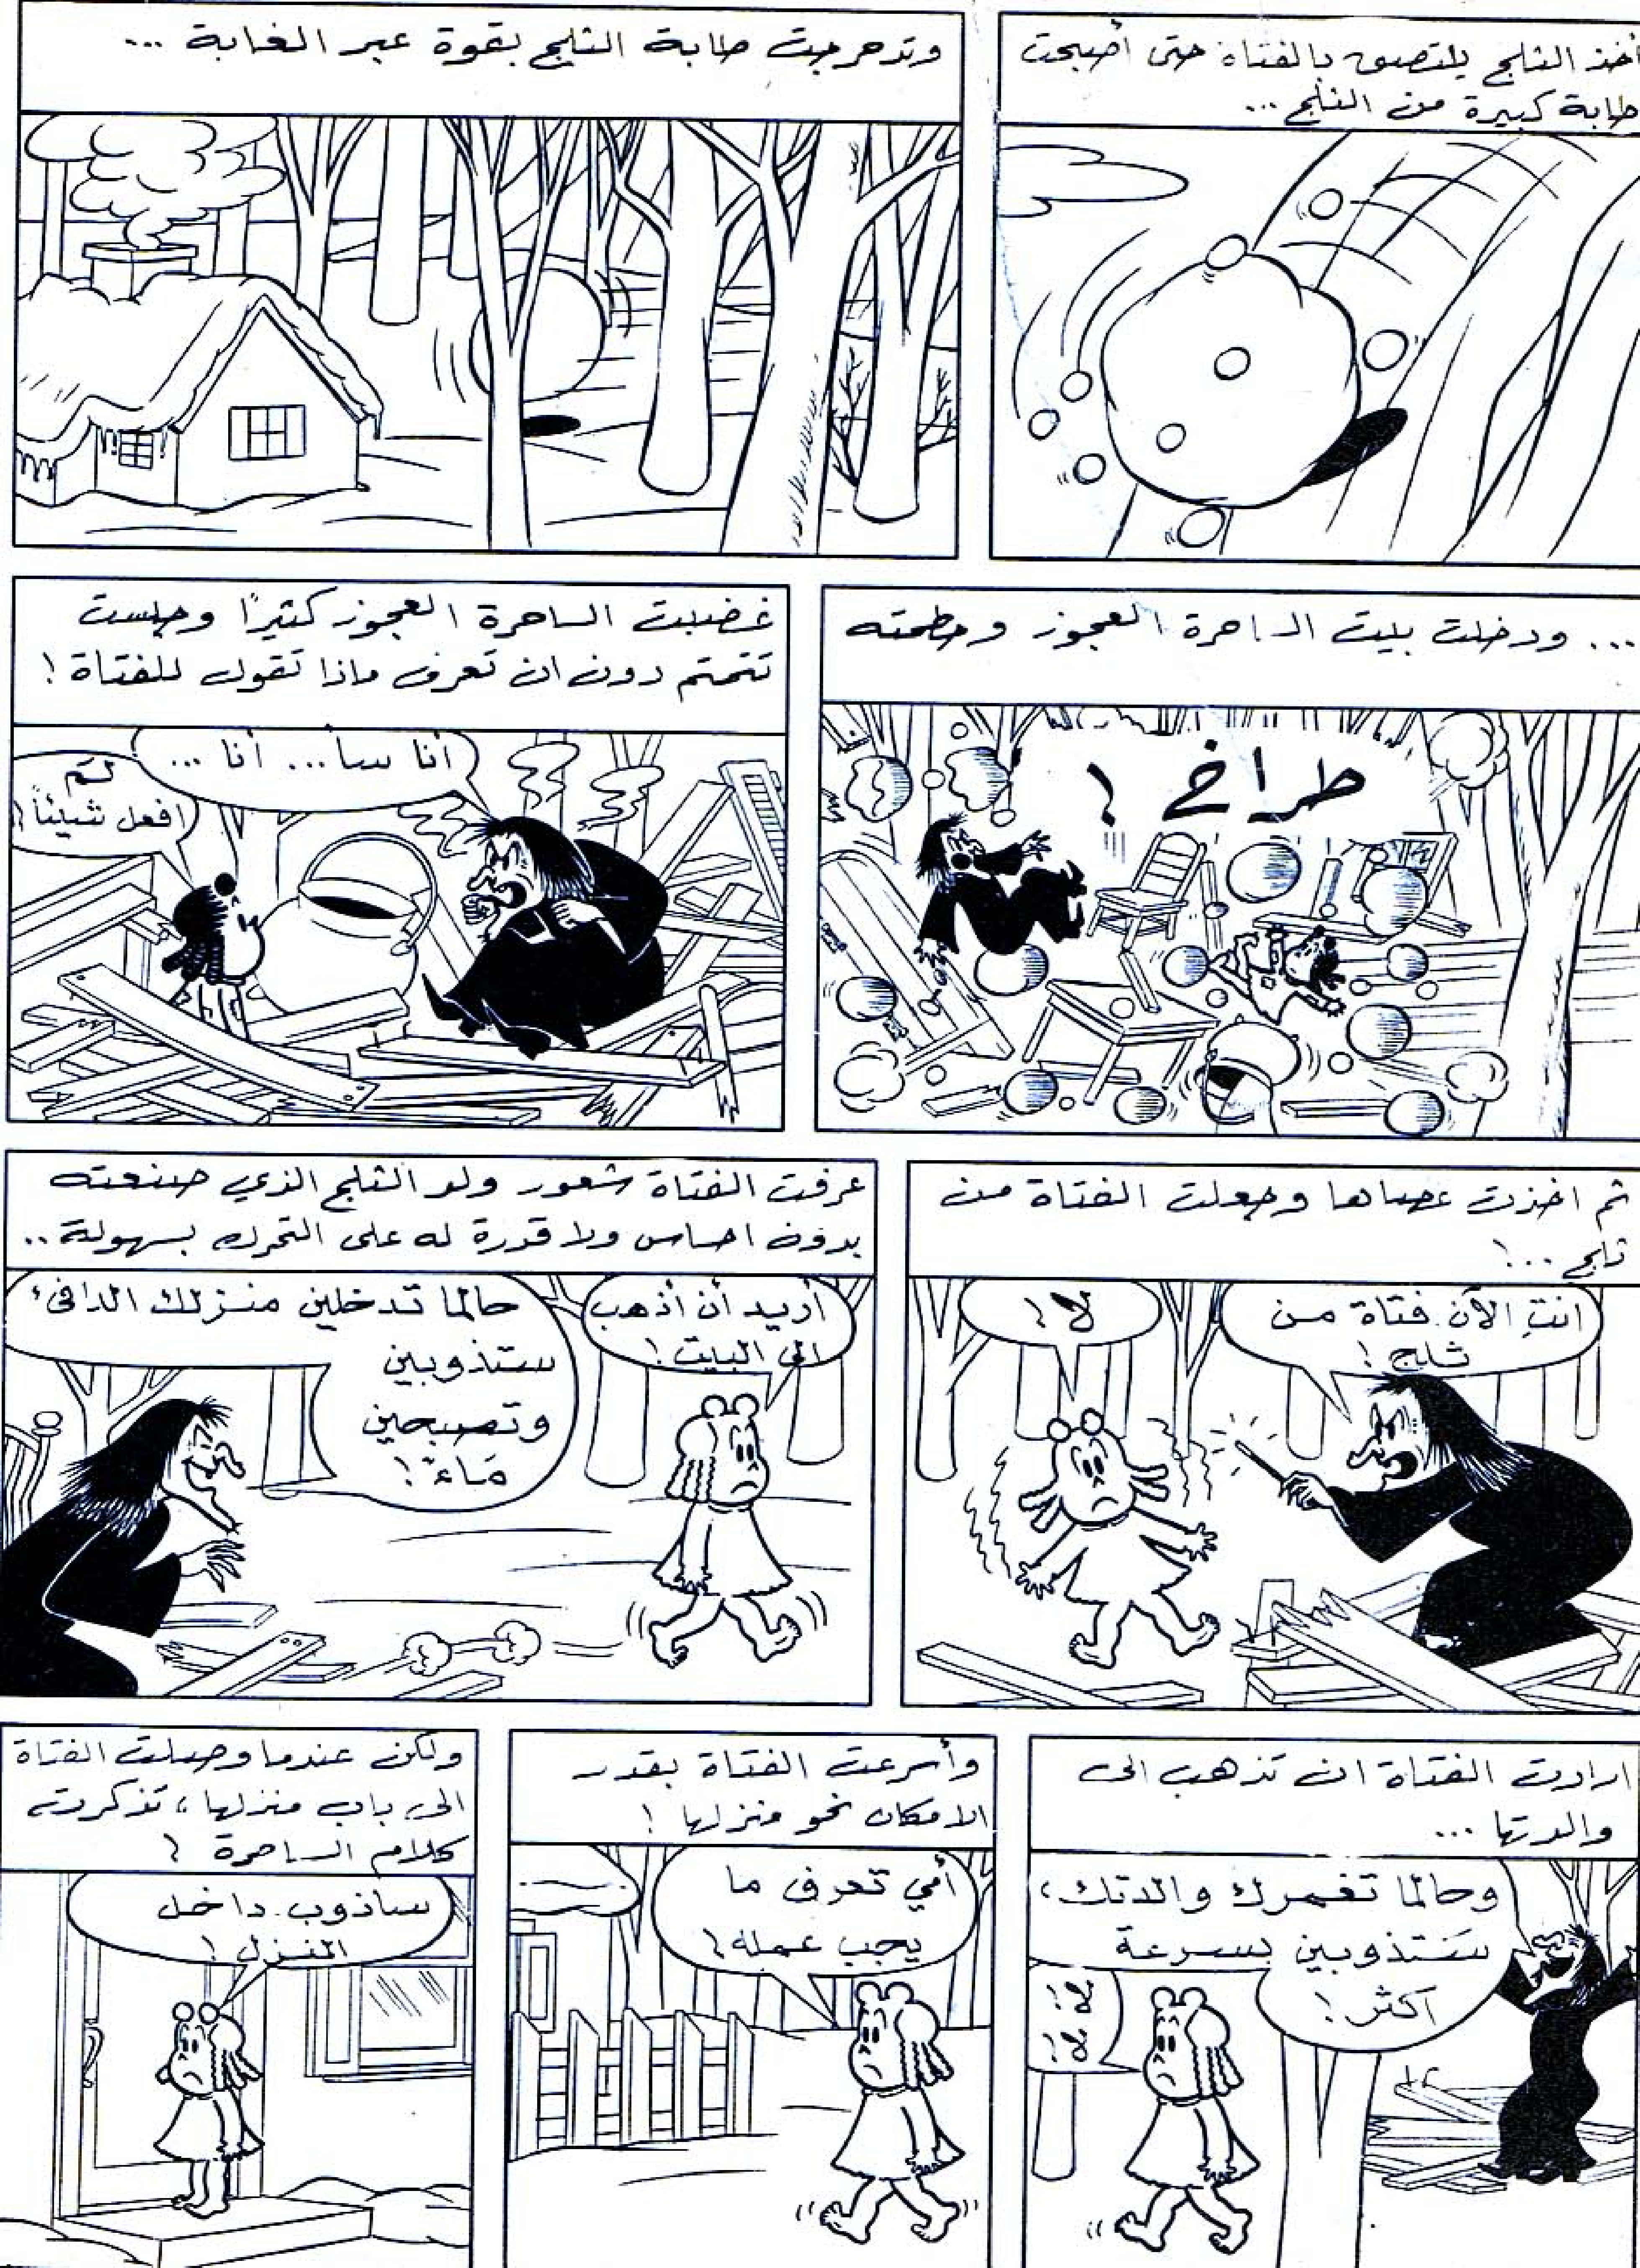 أخذ الثلج يلتصق بالفتاة حتى أصبحت
طابة كبيرة من الثلج...
وتدحرجت طابة الثلج بقوة عبر الغابة ...
... ودخلت بيت الساحرة العجوز وحطمته
طراخ !
غضبت الساحرة العجوز كثيرًا وجلست
تتمتم دون ان تعرف ماذا تقول للفتاة !
أنا سأ... أنا ...
لم
افعل شيئاً !
ثم اخذت عصاها وجعلت الفتاة من
ثلج ...!
انتِ الآن فتاة من
ثلج !
لا !
عرفت الفتاة شعور ولد الثلج الذي صنعته
بدون احساس ولا قدرة له على التحرك بسهولة..
أريد أن أذهب
الى البيت !
حالما تدخلين منزلك الدافئ
ستذوبين
وتصبحين
مَاءً !
ارادت الفتاة ان تذهب الى
والدتها ...
وحالما تغمرك والدتك،
سَتذوبين بسرعة
اكثر !
لا !
لا !
وأسرعت الفتاة بقدر
الامكان نحو منزلها !
أمي تعرف ما
يجب عمله !
ولكن عندما وصلت الفتاة
الى باب منزلها، تذكرت
كلام الساحرة !
ساذوب داخل
المنزل !